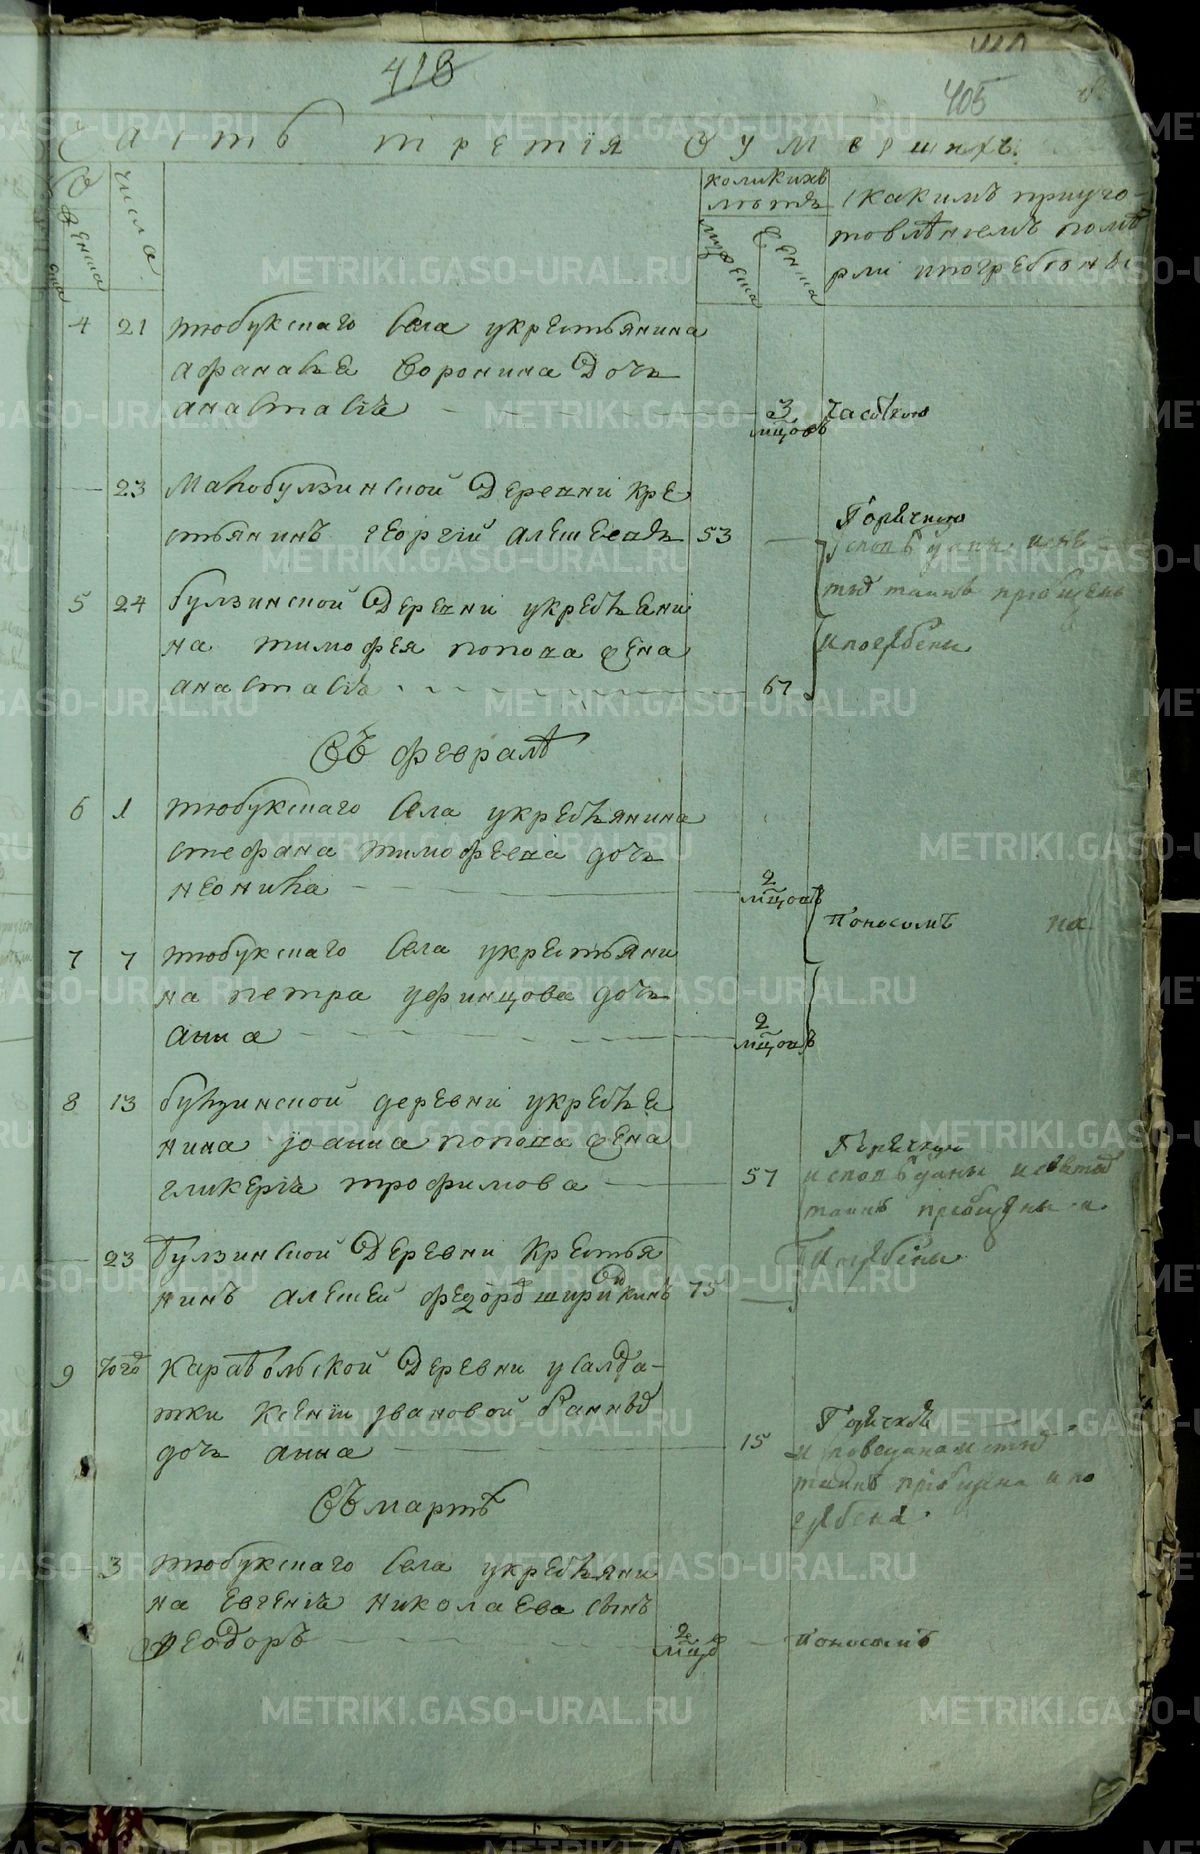 418
405
Часть третія оумершихъ
Женска
числа
коликихъ
лѣтъ
мужеска
женска
какимъ приуго-
товлѣнiемъ поме
рли ипогребены
4 21 тюбукскаго села укрестьянина
афанасья воронина дочь
анастасiѣ 3 мцовъ часоткою
23 Малобулзинской деревни кре-
стьянинъ георгiй алексеевъ 53 Горячкою
исповѣданы исвя
тых таинъ приобщены
5 24 булзинской деревни укресьяни
на тимофея попова жена ипогребены
анастасiѣ 67
Въ февралѣ
6 1 тюбукскаго села укресьянина
стефана тимофеева дочь
неонила 2 мцовъ
Поносомъ
7 7 тюбукскаго села укрестьяни
на петра уфинцова дочь
анна 2 мцовъ
8 13 булзинской деревни укресья
нина iоанна попова жена Горячкою
гликерiѣ трофимова 57 исповѣданы исвятых
таинъ приобщены и
23 булзинской деревни крестья погребены
нинъ алексей федоровъ ширійкинъ 75
9 Карабольской деревни усалда-
тки Ксенiи ивановой
дочь анна 15 Горячкою
исповедана
таинъ приобщена ипо
гребена
Въ мартѣ
3 тюбукскаго села укресьяни
на евгенiѣ николаева сынъ
феодоръ 2 мцов поносомъ
METRIKI.GASO-URAL.RU